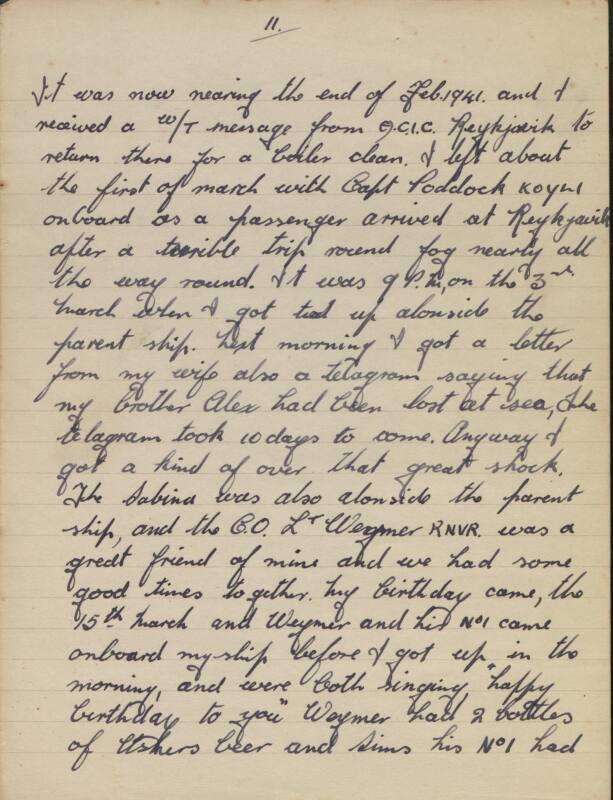 11.
It was now nearing the end of Feb. 1941. and I
received a W/T message from O.C.I.C. Reykjavik to
return there for a boiler clean. I left about
the first of march with Capt Poddock KOYLI
onboard as a passenger arrived at Reykjavik
after a terrible trip round fog nearly all
the way round. It was 9 P.M, on the 3rd
March when I got tied up alonside the
parent ship. Next morning I got a letter
from my wife also a telagram saying that
my brother Alex had been lost at sea, The
telagram took 10 days to come. Anyway I
got a kind of over that great shock.
The Sabina was also alonside the parent
ship, and the C.O. Lt Weymer RNVR. was a
great friend of mine and we had some
good times together. My birthday came, the
15th March and Weymer and his No1 came
onboard my ship before I got up in the
morning, and were both singing "happy
birthday to you" Weymer had 2 bottles
of Ushers beer and Sims his No1 had